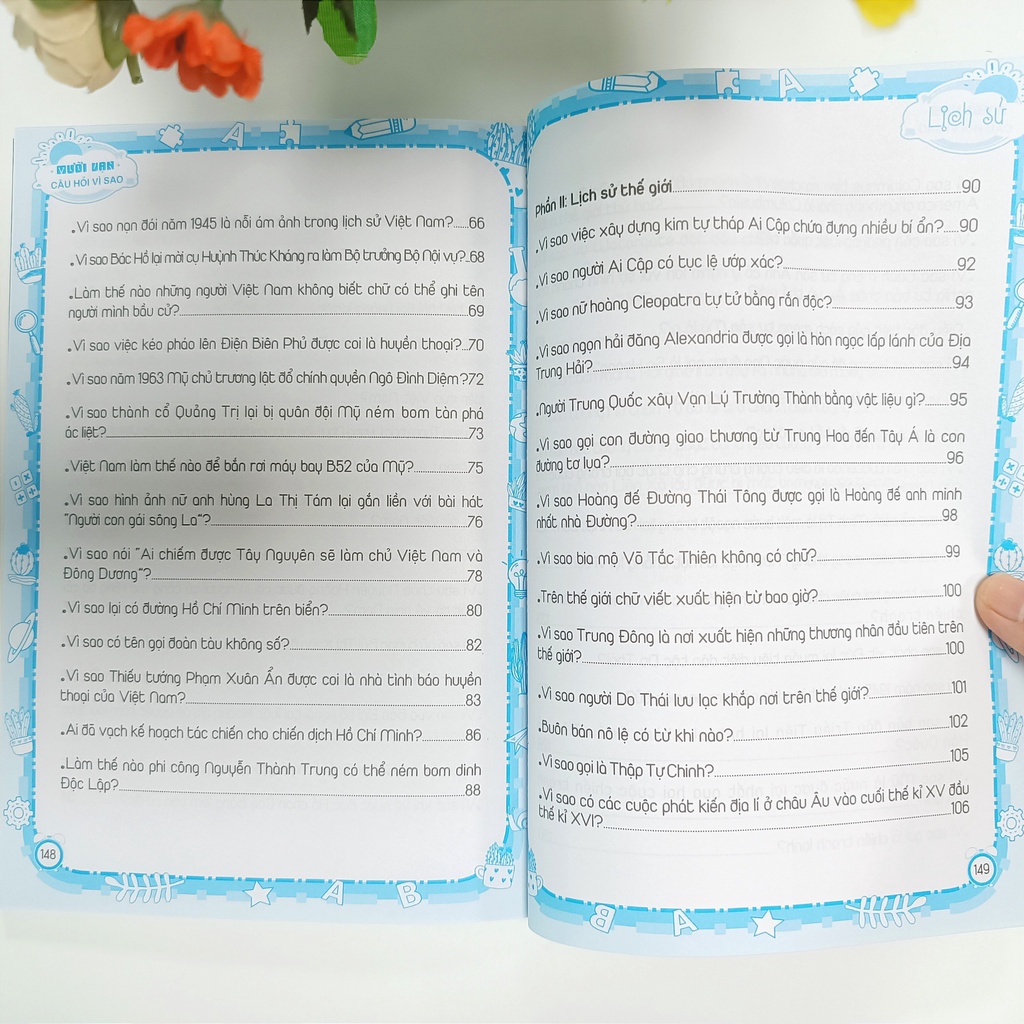 MƯỜI VẠN
CÂU HỎI VÌ SAO
.Vì sao nạn đói năm 1945 là nỗi ám ảnh trong lịch sử Việt Nam?......66
.Vì sao Bác Hồ lại mời cụ Huỳnh Thúc Kháng ra làm Bộ trưởng Bộ Nội vụ?..68
.Làm thế nào những người Việt Nam không biết chữ có thể ghi tên
người mình bầu cử?..........69
.Vì sao việc kéo pháo lên Điện Biên Phủ được coi là huyền thoại?...70
.Vì sao năm 1963 Mỹ chủ trương lật đổ chính quyền Ngô Đình Diệm?72
.Vì sao thành cổ Quảng Trị lại bị quân đội Mỹ ném bom tàn phá
ác liệt?..........73
.Việt Nam làm thế nào để bắn rơi máy bay B52 của Mỹ?..........75
.Vì sao hình ảnh nữ anh hùng La Thị Tám lại gắn liền với bài hát
"Người con gái sông La"?..........76
.Vì sao nói "Ai chiếm được Tây Nguyên sẽ làm chủ Việt Nam và
Đông Dương"?..........78
.Vì sao lại có đường Hồ Chí Minh trên biển?..........80
.Vì sao có tên gọi đoàn tàu không số?..........82
.Vì sao Thiếu tướng Phạm Xuân Ẩn được coi là nhà tình báo huyền
thoại của Việt Nam?..........83
.Ai đã vạch kế hoạch tác chiến cho chiến dịch Hồ Chí Minh?..........86
.Làm thế nào phi công Nguyễn Thành Trung có thể ném bom dinh
Độc Lập?..........88
148
Lịch sử
Phần II: Lịch sử thế giới..........90
.Vì sao việc xây dựng kim tự tháp Ai Cập chứa đựng nhiều bí ẩn?.....90
.Vì sao người Ai Cập có tục lệ ướp xác?..........92
.Vì sao nữ hoàng Cleopatra tự tử bằng rắn độc?..........93
.Vì sao ngọn hải đăng Alexandria được gọi là hòn ngọc lấp lánh của Địa
Trung Hải?..........94
.Người Trung Quốc xây Vạn Lý Trường Thành bằng vật liệu gì?........95
.Vì sao gọi con đường giao thương từ Trung Hoa đến Tây Á là con
đường tơ lụa?..........96
.Vì sao Hoàng đế Đường Thái Tông được gọi là Hoàng đế anh minh
nhất nhà Đường?..........98
.Vì sao bia mộ Võ Tắc Thiên không có chữ?..........99
.Trên thế giới chữ viết xuất hiện từ bao giờ?..........100
.Vì sao Trung Đông là nơi xuất hiện những thương nhân đầu tiên trên
thế giới?..........100
.Vì sao người Do Thái lưu lạc khắp nơi trên thế giới?..........101
.Buôn bán nô lệ có từ khi nào?..........102
.Vì sao gọi là Thập Tự Chinh?..........105
.Vì sao có các cuộc phát kiến địa lí ở châu Âu vào cuối thế kỉ XV đầu
thế kỉ XVI?..........106
149